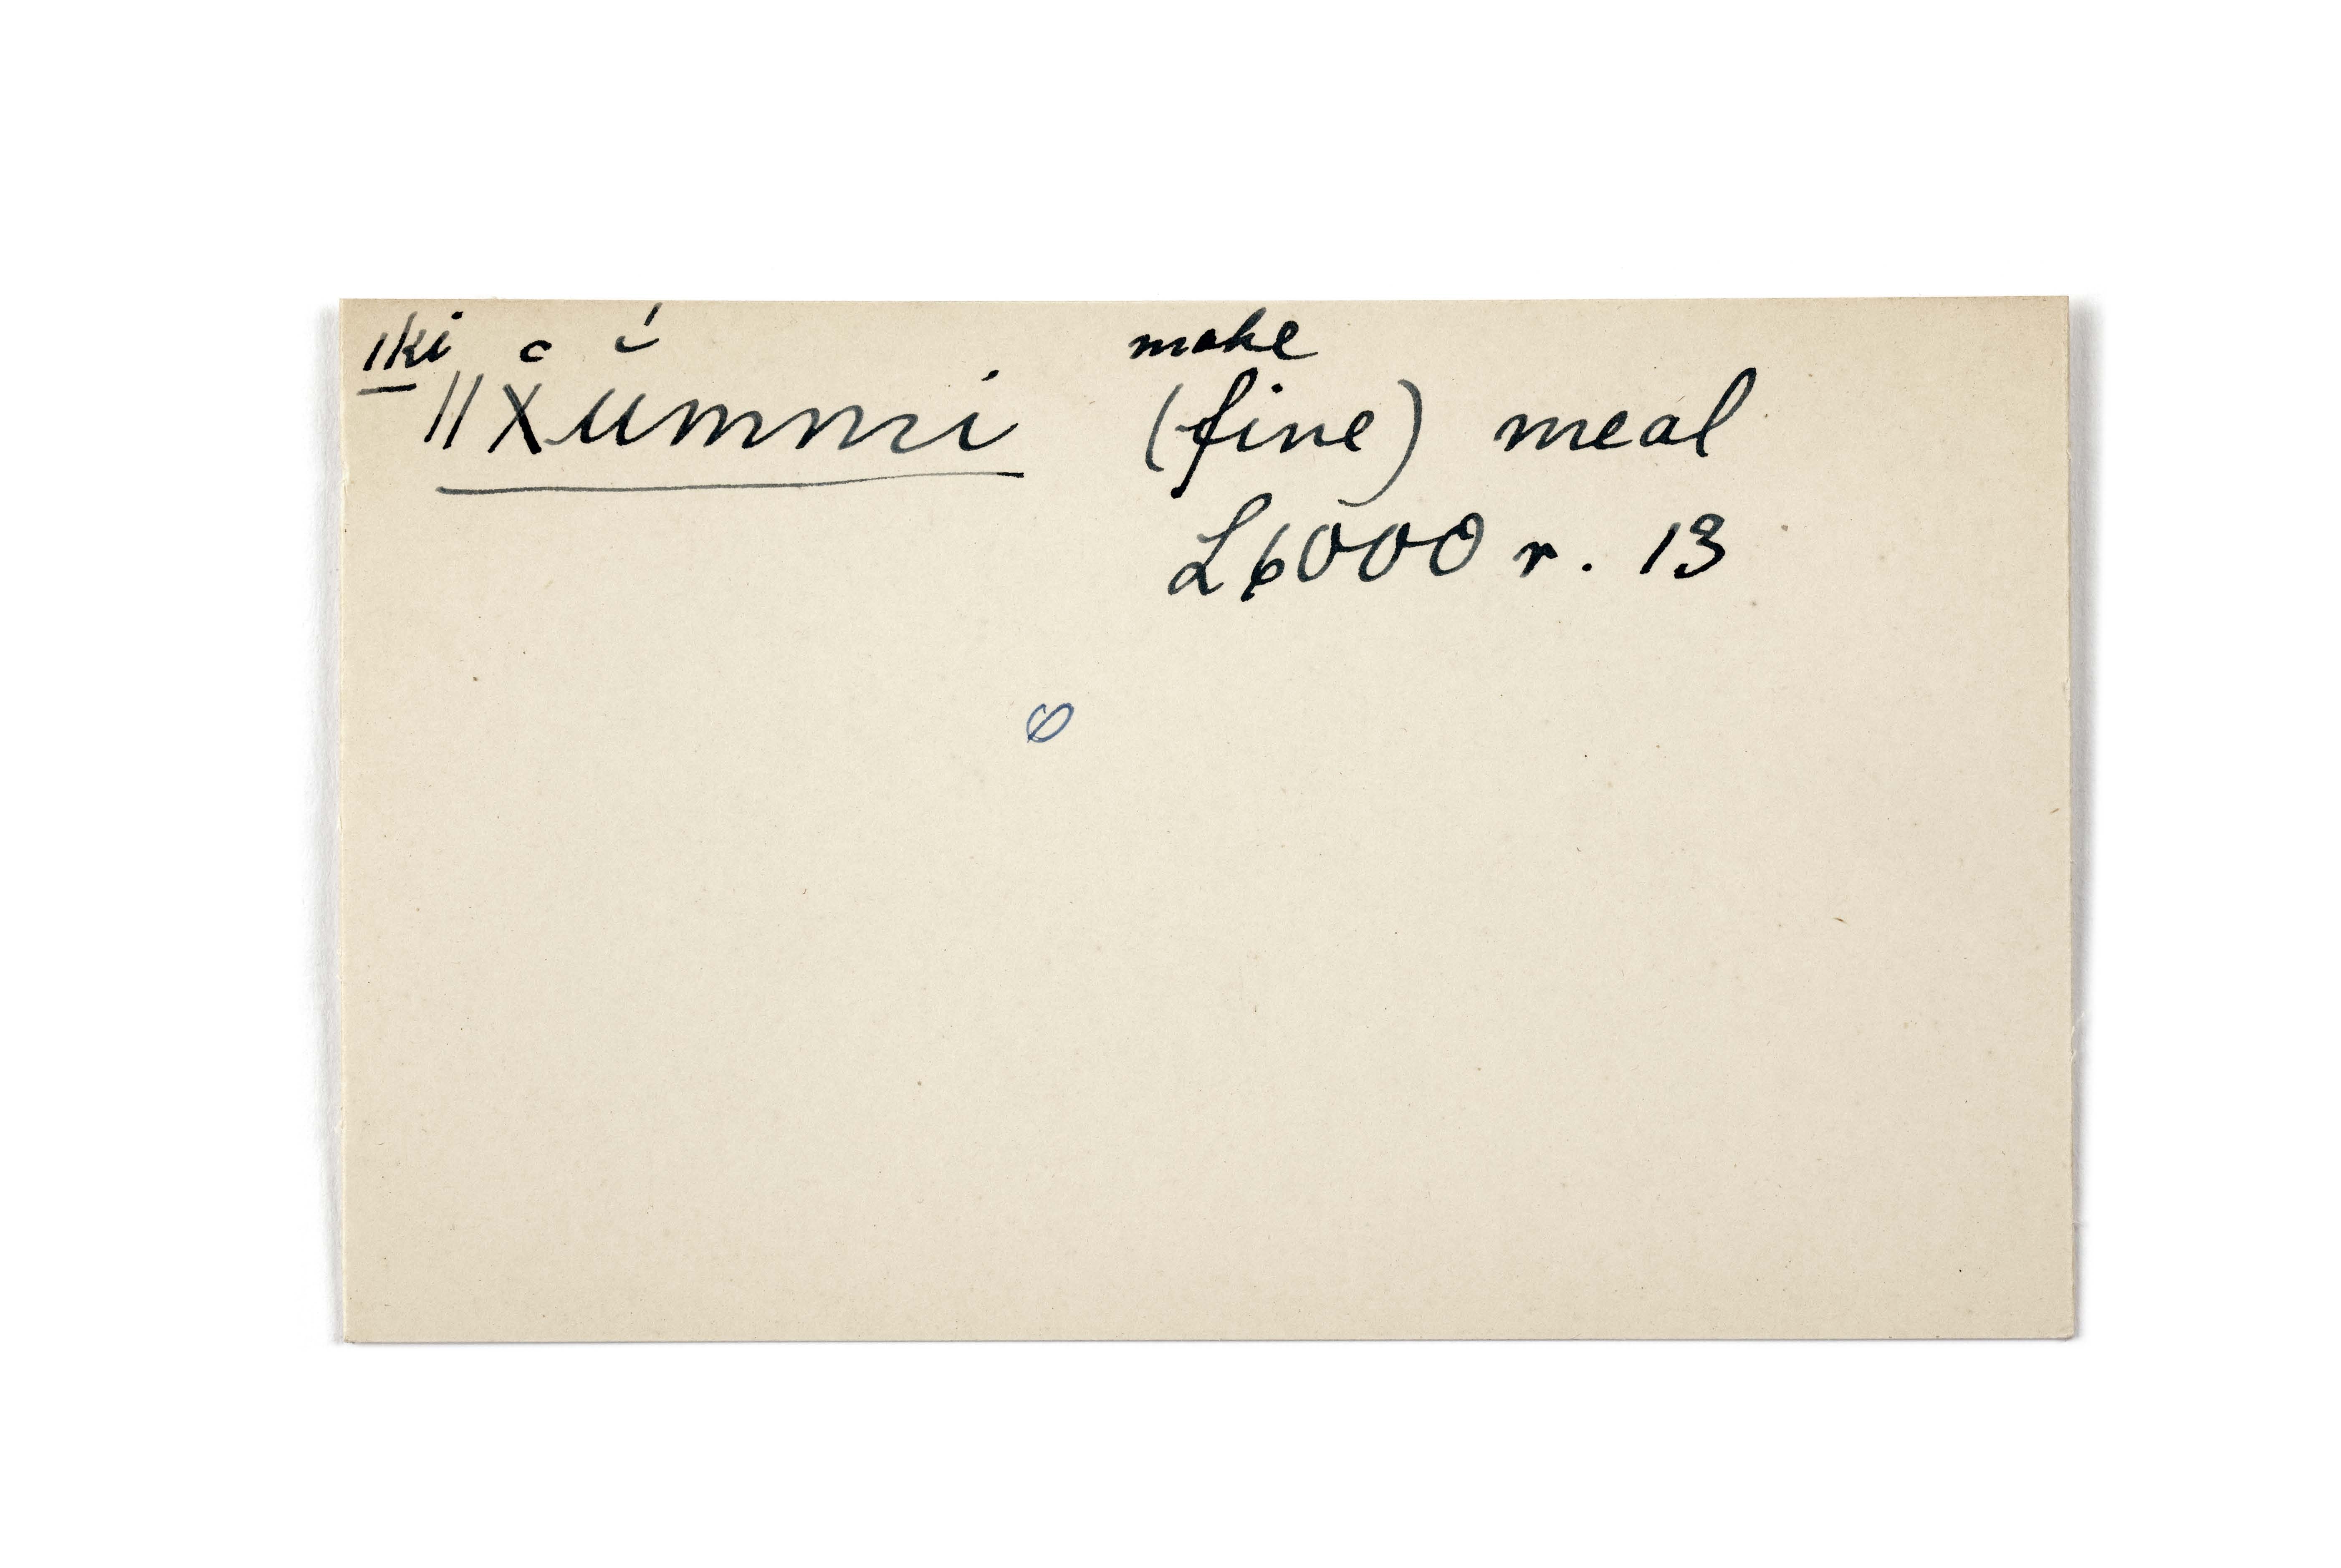 ǀki make
ǁxummi (fine) meal
L6000 r. 13